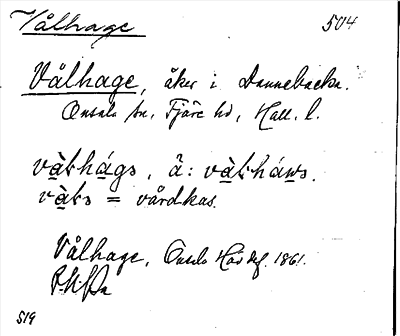 Vålhage 504
Vålhage, åker i Dannebacka.
Onsala sn, Fjäre hd, Hall. l.
vàɫhágs, ä: vàɫháws.
vàɫs = vårdkas.
Vålhage, Onsala 1861.
519